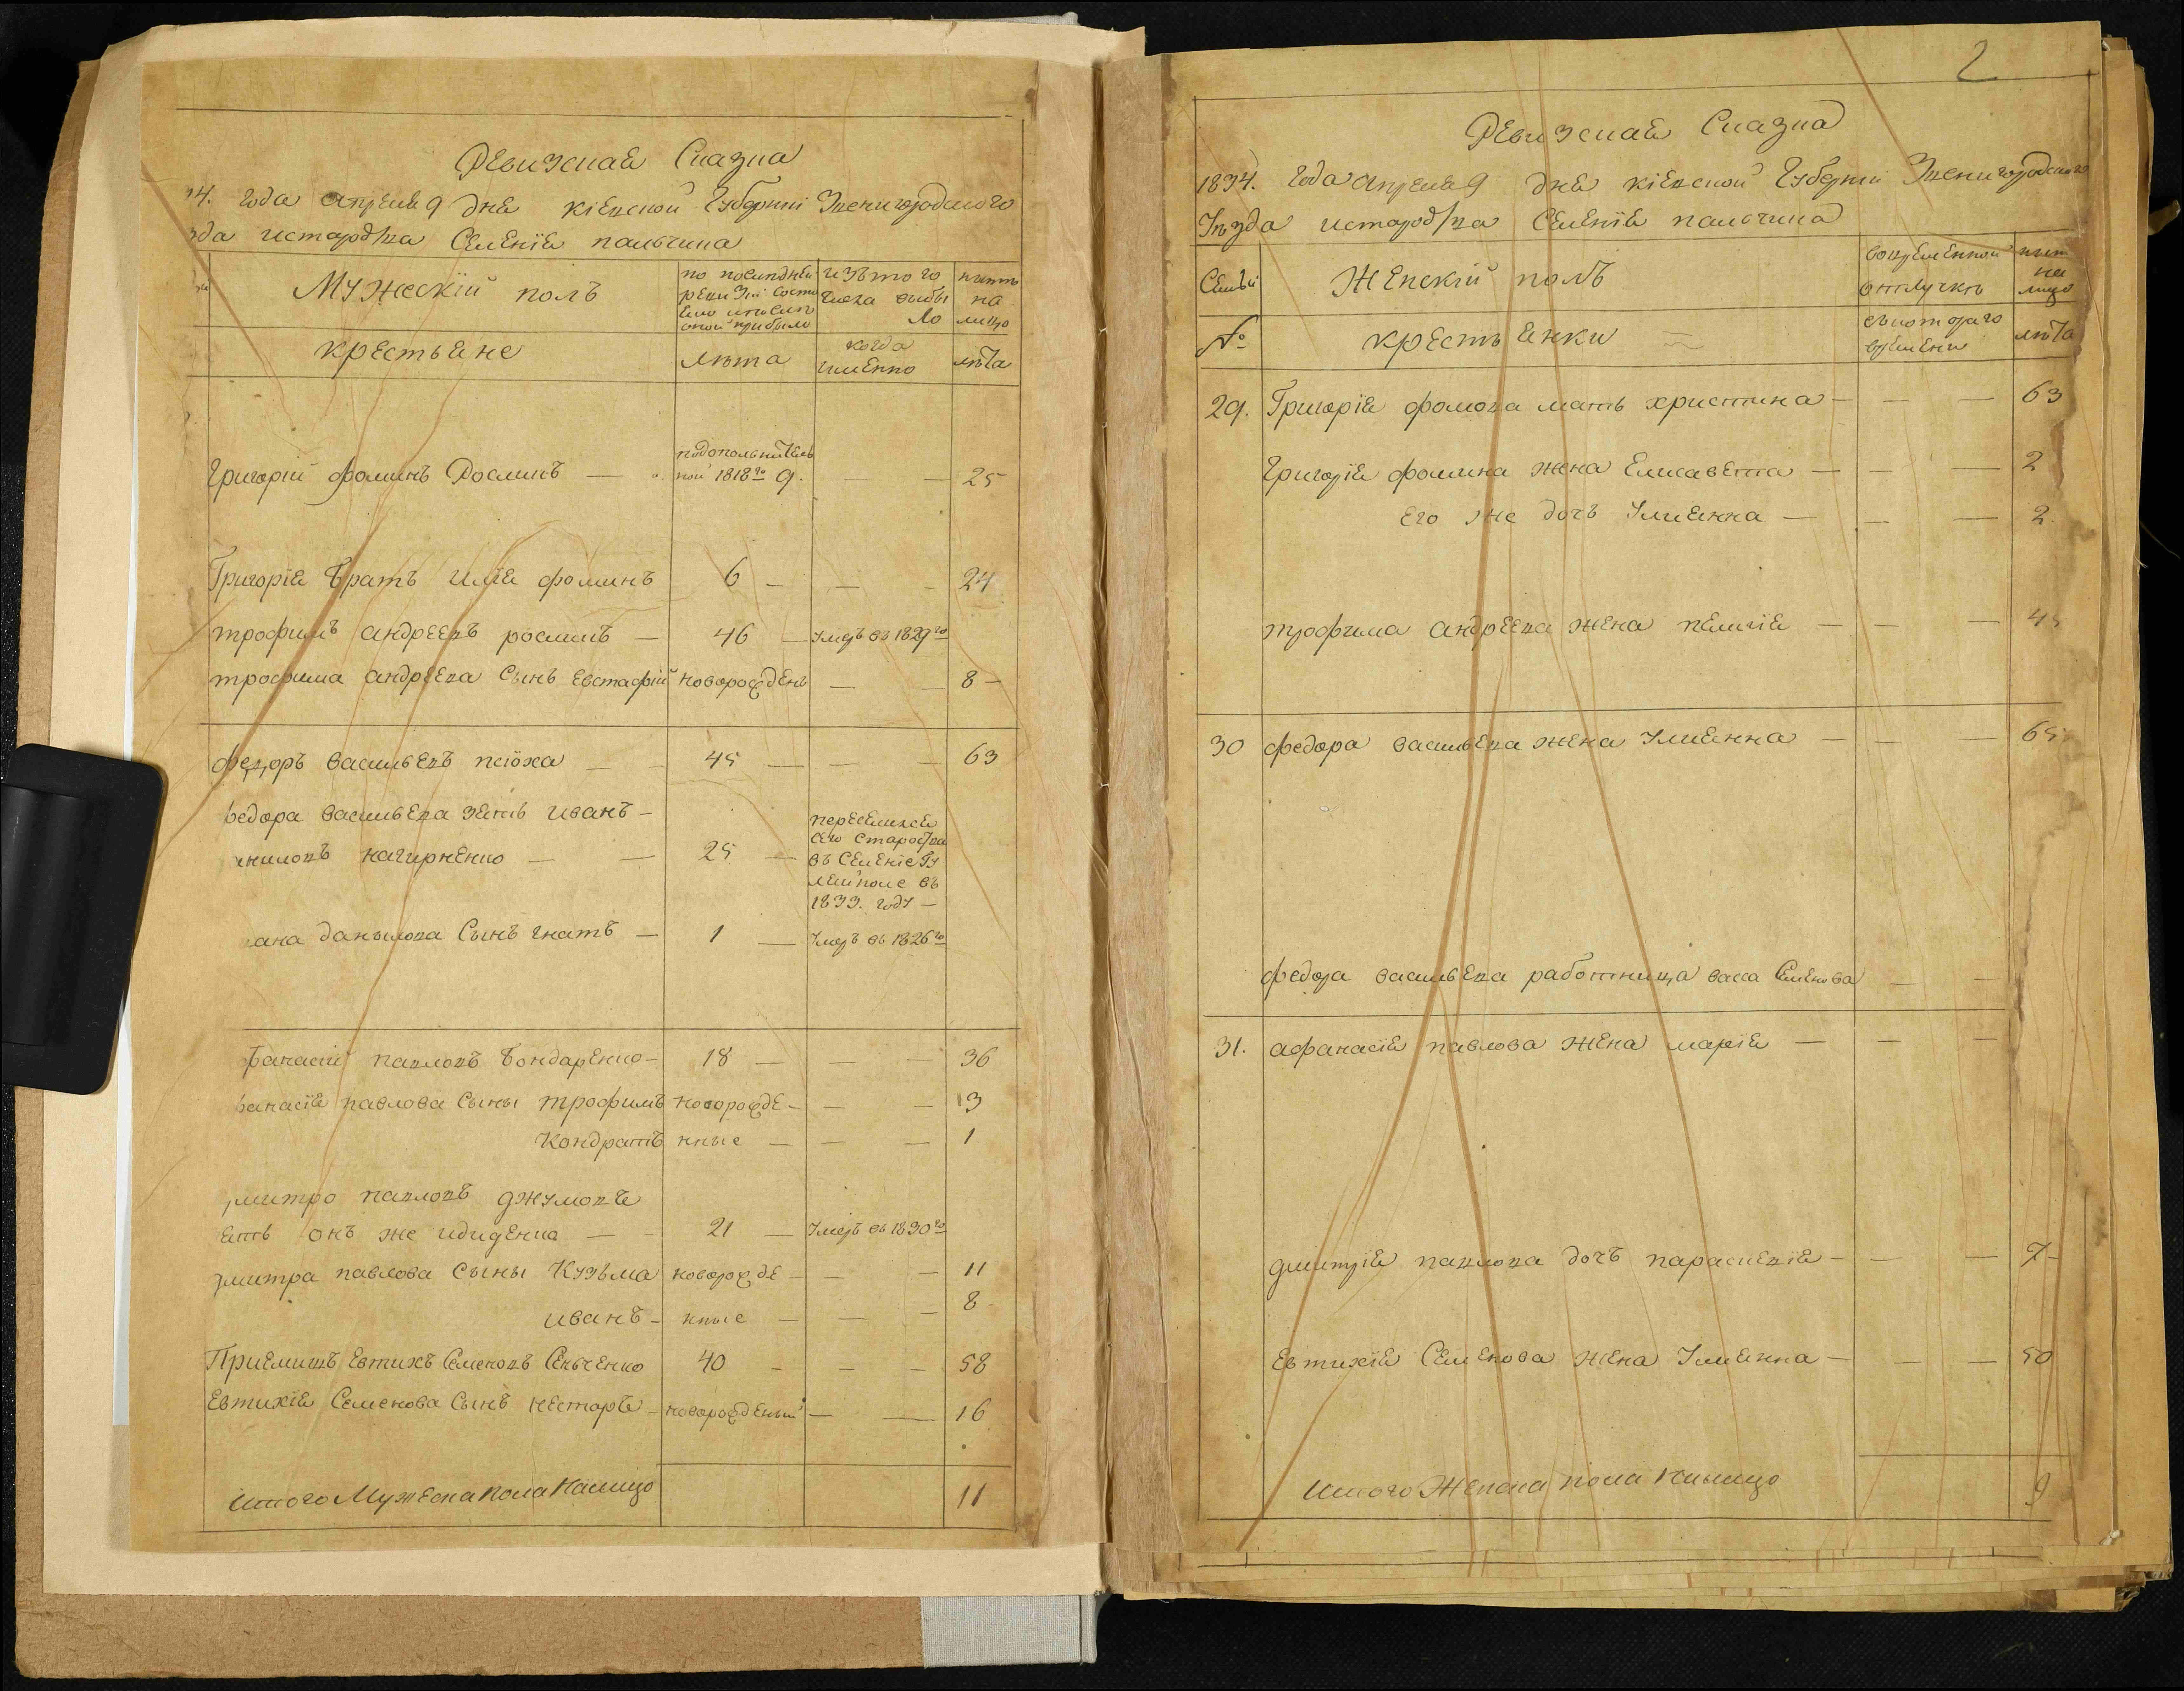 Ревизская Сказка
34. года апреля 9 дня кіевской Губерніи Звенигородского
зда истарос/ва Селенія пальчика
Мужескій полъ
по последней ревизіи состо
изътого числа выбы
ло
нынѣ на лицо
крестьяне
лѣта
когда именно
лѣта
подополнитель
Григорій фоминъ Росликъ — ной 1818го 9. — — 25
Григорія братъ илія фоминъ 6 — — — 24
трофимъ андреевъ росликъ — 46 — Умеръ въ 1829го
трофима андреева сынъ евстафій новорожденъ — — 8 —
федоръ васильевъ — — 45 — — — 63
федора васильева зять иванъ —
ниловъ нагирненко — — 25 —
переселился
въ селеніе Гу
лейполе въ
1833. году —
ана данилова сынъ гнатъ — 1 — Умеръ въ 1826го
фанасій павловъ бондаренко — 18 — — — 36
фанасія павлова сыны трофимъ новорожде — — — 13
Кондратъ нные — — — 1
митро павловъ
онъ же — 21 — Умеръ въ 1830го
дмитра павлова сыны Кузьма новорожде — — — 11
иванъ — нные — — — 8 —
Приемишъ евтихъ семеновъ 40 — — — 58
Евтихія Семенова Сынъ несторъ — новорожденый — — 16
Итого Мужеска пола налицо 11
2
Ревизская Сказка
1834. года апреля 9 дня кіевской Губерніи Звенигородского
Уѣзда истарос/ва Селенія пальчика
Семьи
Женскій полъ
вовременной отлучкѣ
нынѣ на лицо
№
крестьянки
съкотораго времени
лѣта
29. Григорія фомова мать христина — — — 63
Григорія фомина жена Елисавета — — — 2
Его же дочъ Улиянна — — — 2.
трофима андреева жена пелагія — — — 45
30 федора васильева жена Улиянна — — — 65
федора васильева работница васса Семенова — —
31. афанасія павлова жена марія — — —
дмитрія павлова дочъ параскевія — — — 7 —
Евтихія Семенова жена Улиянна — — — 50
Итого Женска пола налицо 9